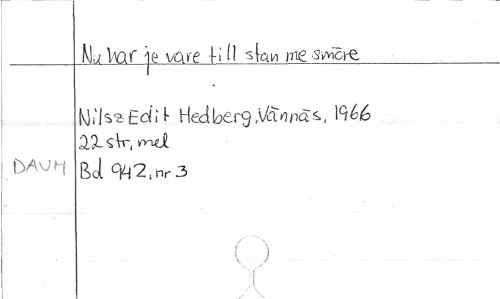 Nu har je vare till stan me smöre
Nils & Edit Hedberg, Vännäs, 1966
22 str, mel
DAUM Bd 942, nr 3